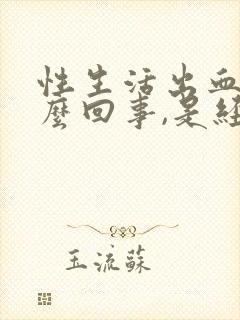 性生活出血
麼回事,是經
玉流蘇